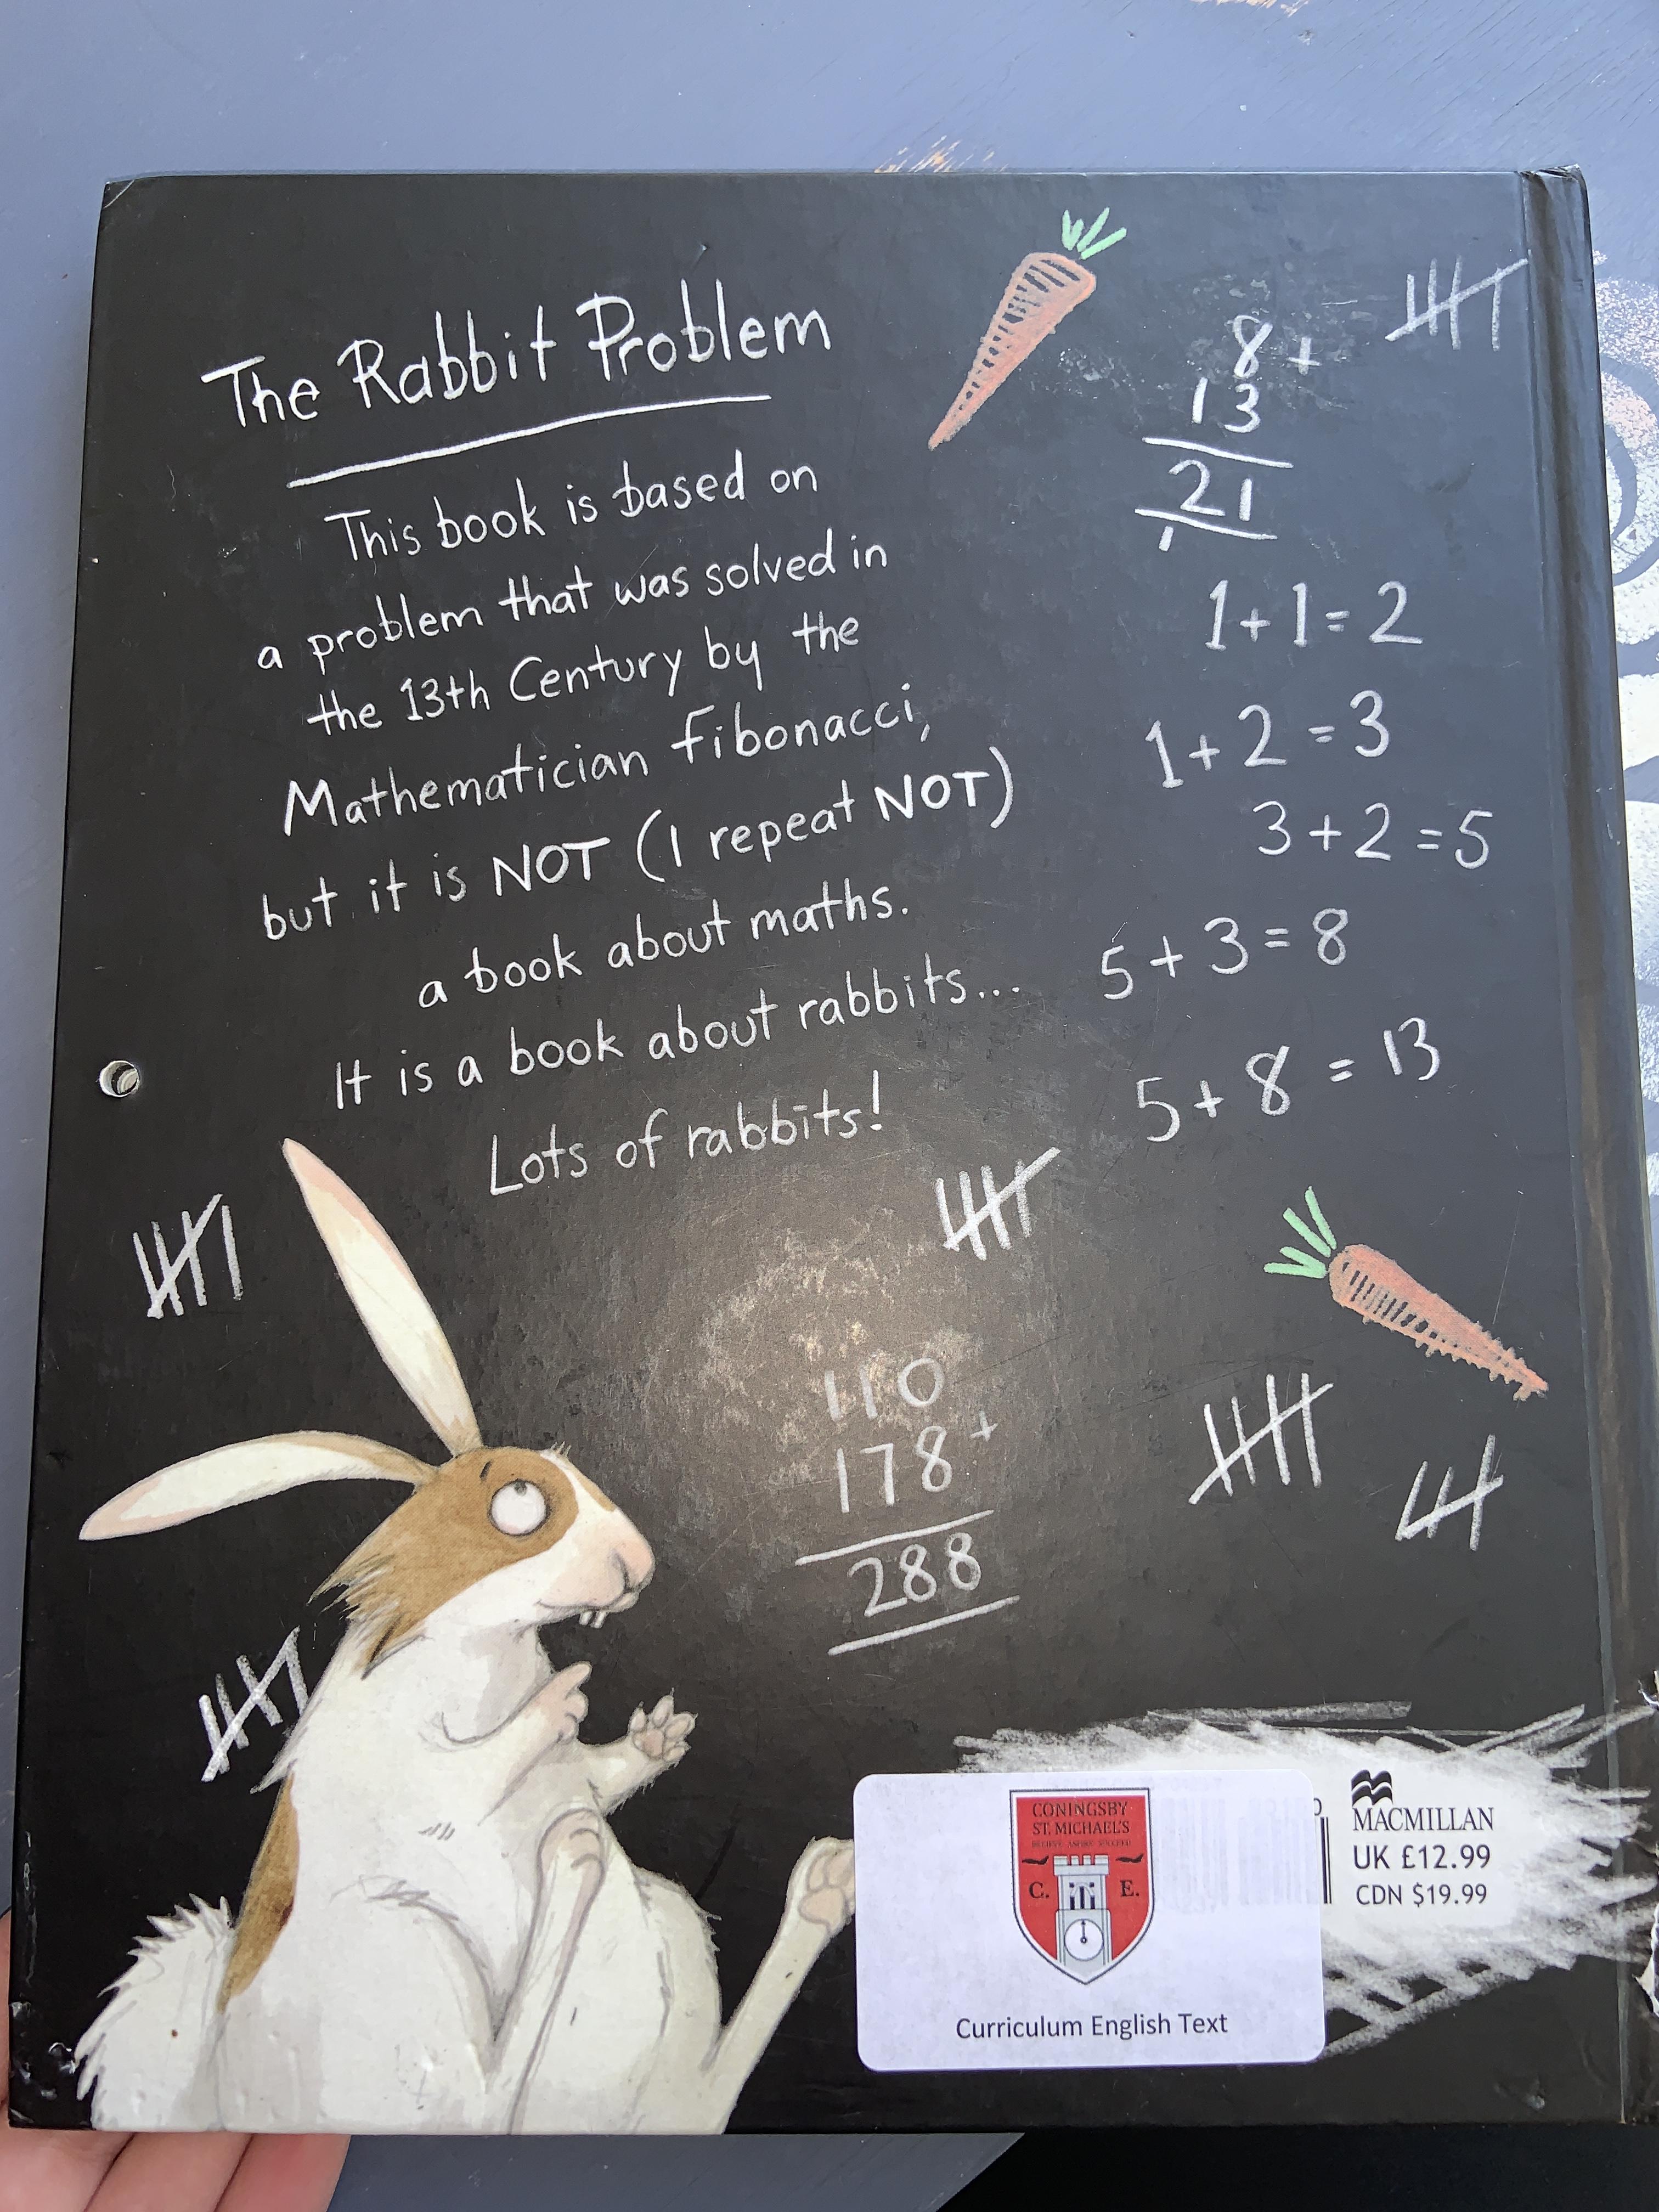 The Rabbit Problem
This book is based on
a problem that was solved in
the 13th Century by the
Mathematician Fibonacci,
but it is NOT (I repeat NOT)
a book about maths.
It is a book about rabbits...
Lots of rabbits!
8+
13
21
1
1+1=2
1+2=3
3+2=5
5+3=8
5+8=13
110
178+
288
CONINGSBY
ST. MICHAEL'S
BELIEVE ASPIRE SUCCEED
C. E.
Curriculum English Text
MACMILLAN
UK £12.99
CDN $19.99